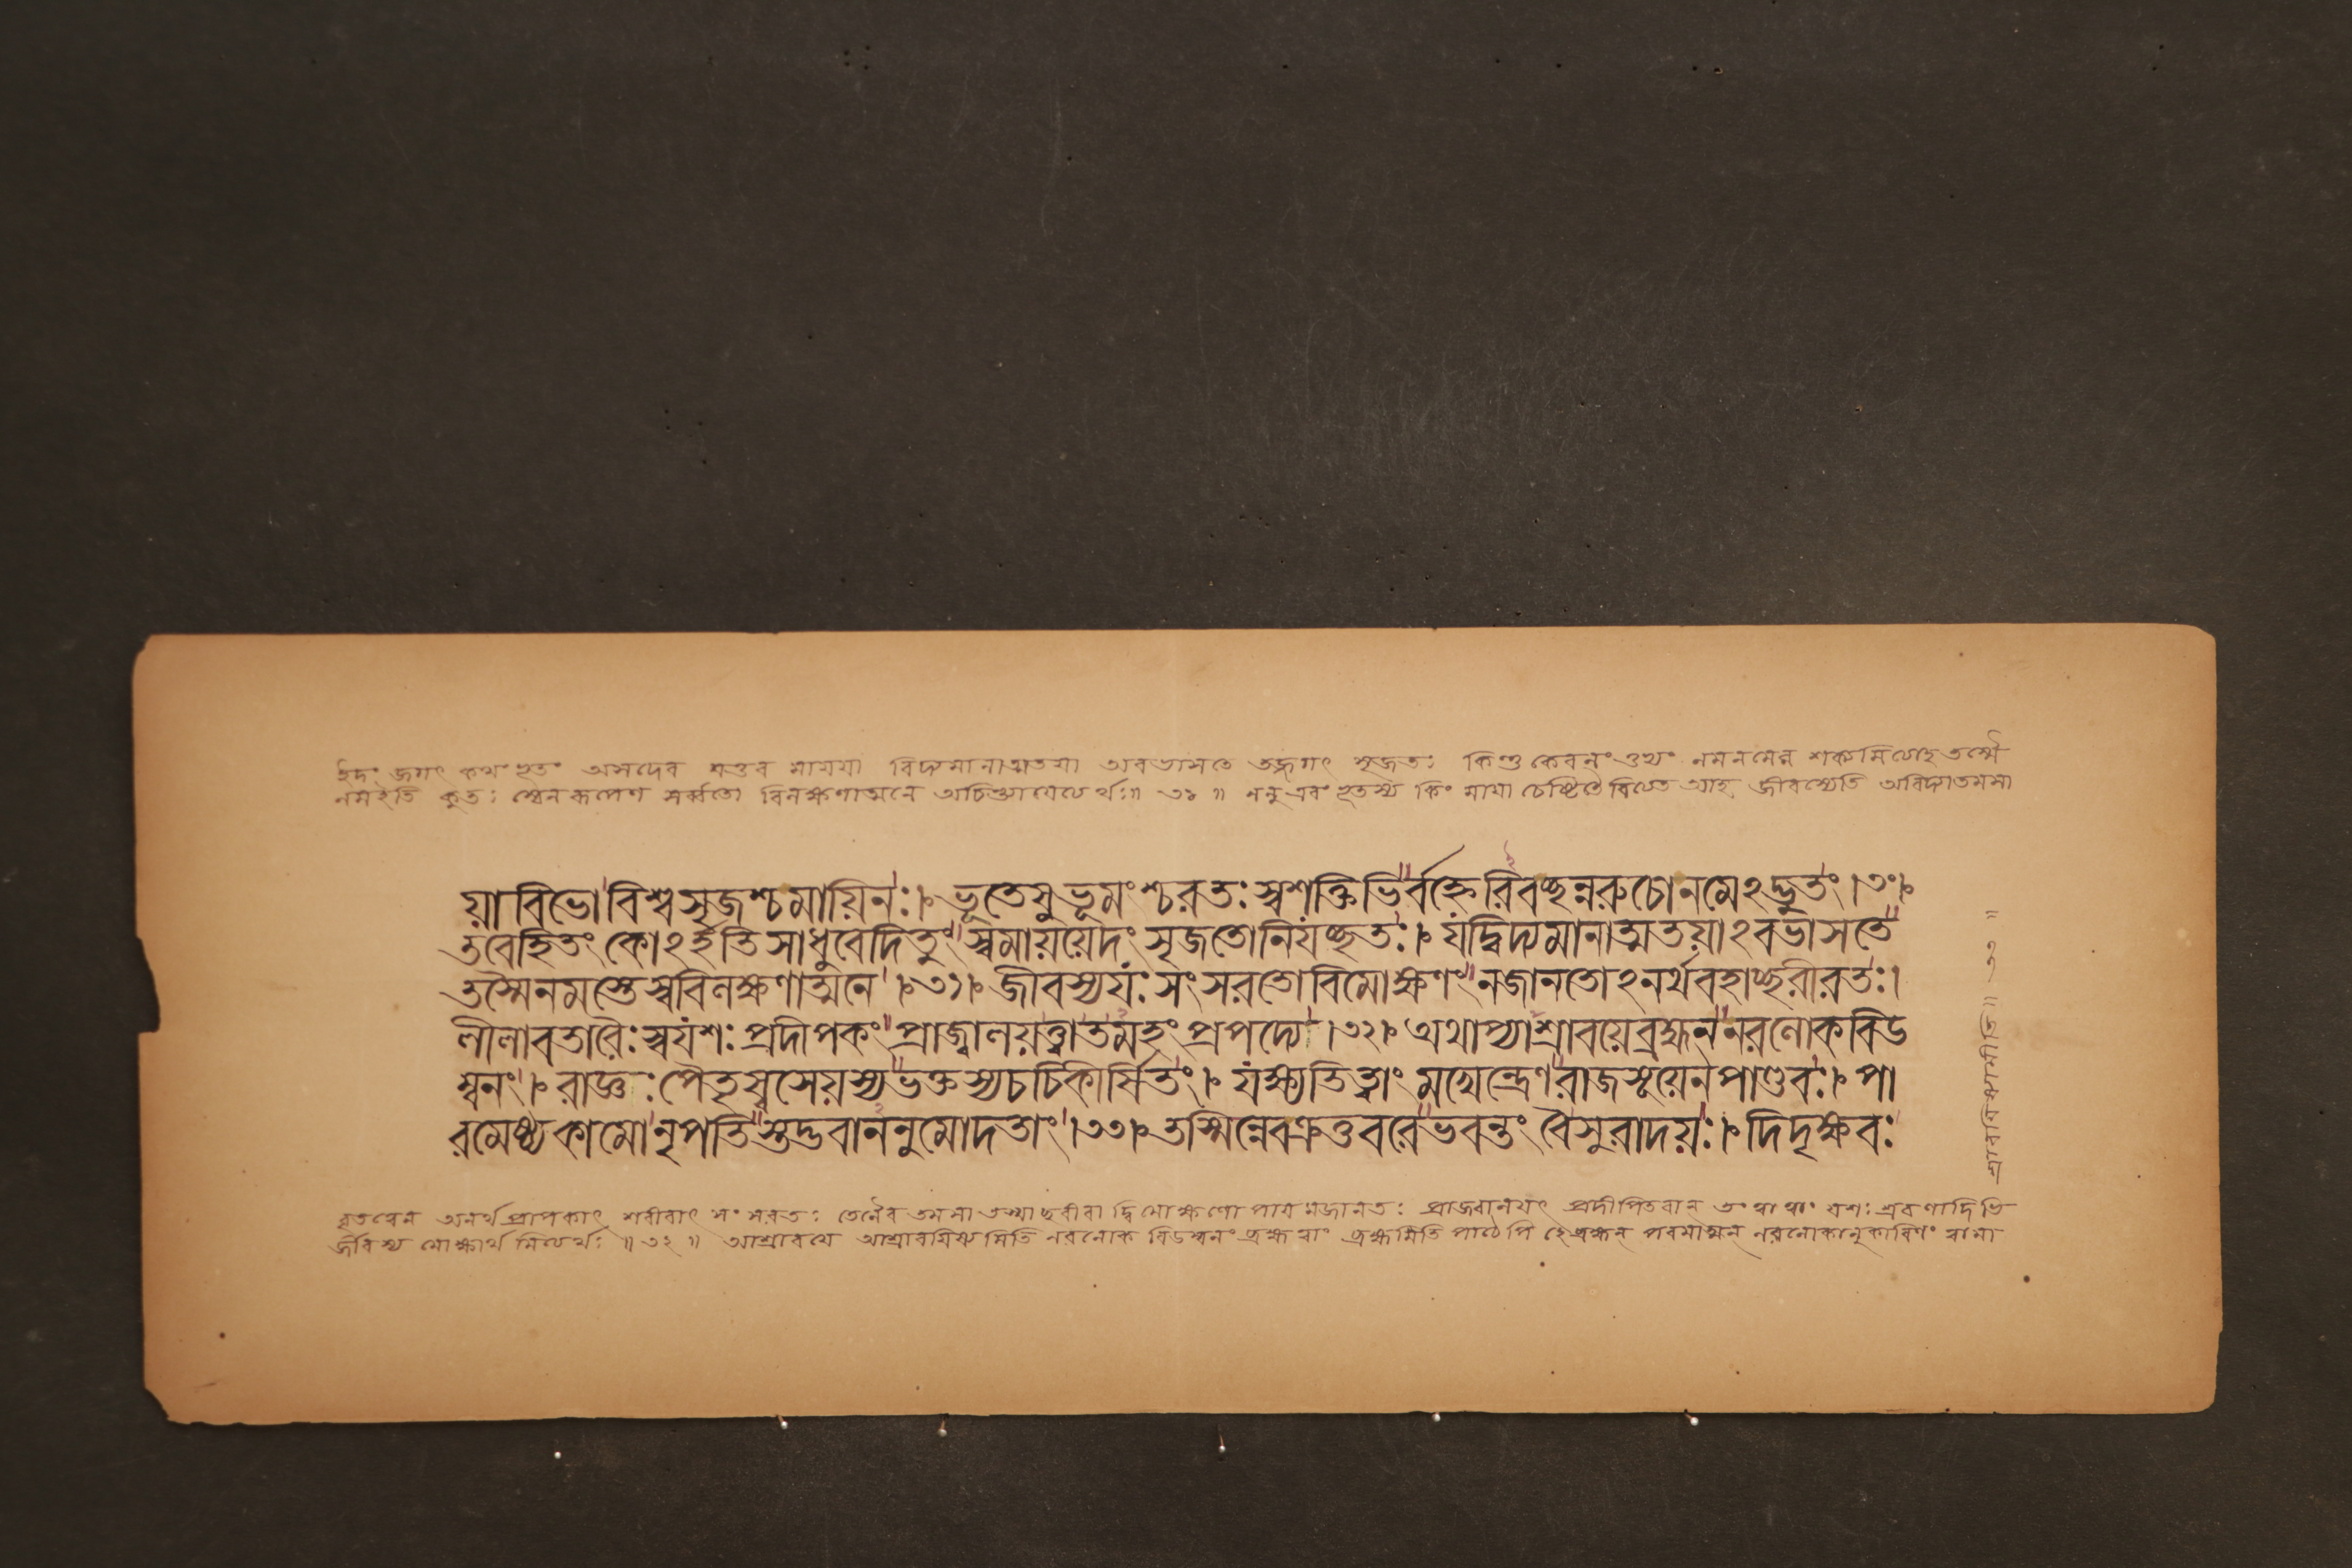 ইদং জগৎ কথংভূতং অসদেব যত্তব মায়য়া বিদ্যমানাত্মতয়া অবভাসতে তজ্জগৎ সৃজতঃ কিন্তু কেবলং তুভ্যং নমনমেব শক্যমিত্যাহ তস্মৈ
নমইতি কুতঃ স্বেনরূপেণ সর্ব্বতো বিলক্ষণাত্মনে অচিন্ত্যায়েত্যর্থঃ॥ ৩১ ॥ ননু এবংভূতস্য কিং মায়া চেষ্টিতেনেত্যত আহ জীবস্যেতি অবিদ্যাতমসা
য়া বিভো বিশ্বসৃজশ্চমায়িনঃ। ভূতেষুভূমংশ্চরতঃ স্বশক্তিভির্বহ্নেরিবচ্ছন্নরুচোনমেঽদ্ভুতং।৩০।
তবেহিতং কোঽর্হতি সাধুবেদিতুং স্বমায়য়েদং সৃজতোনিয়চ্ছতঃ। যদ্বিদ্যমানাত্মতয়াঽবভাসতে
তস্মৈনমস্তেস্ববিলক্ষণাত্মনে।৩১। জীবস্যয়ঃসংসরতোবিমোক্ষণং নজানতোঽনর্থবহাচ্ছরীরতঃ।
লীলাবতারৈঃস্বয়শঃপ্রদীপকং প্রাজ্বালয়ত্ত্বাতমহং প্রপদ্যে।৩২। অথাপ্যাশ্রাবয়েব্রহ্মন নরলোকবিড
ম্বনং। রাজ্ঞঃ পৈতৃস্বসেয়স্যভক্তস্যচচিকীর্সিতং। যক্ষ্যতিত্বাং মখেন্দ্রেণরাজসূয়েনপাণ্ডবঃ। পা
রমেষ্ঠ্যকামোনৃপতিস্তদ্ভবাননুমোদতাং।৩৩। তস্মিন্নেবক্রতুবরেভবন্তং বৈসুরাদয়ঃ। দিদৃক্ষবঃ
বৃতত্বেন অনর্থপ্রাপকাৎ শরীরাৎ সংসরতঃ তেনৈব তমসা তস্মাচ্ছরীরাদ্বিমোক্ষণোপায়মজানতঃ প্রাজ্বালয়ৎ প্রদীপিতবান্ তং ত্বা ত্বাং যশঃ শ্রবণাদিভি
র্জীবস্য মোক্ষার্থমিত্যর্থঃ ॥ ৩২ ॥ আশ্রাবয়ে আশ্রাবয়িষ্যামিতি নরলোক বিড়ম্বনং ব্রহ্ম ত্বাং ব্রহ্মমিতি পাঠেপি হেব্রহ্মন্ পরমাত্মন্ নরলোকানুকারিণং ত্বামা
শ্রাবয়িষ্যামীতি॥ ৩৩ ॥